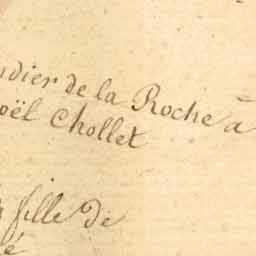 de la Roche à
Noël Chollet
fille de